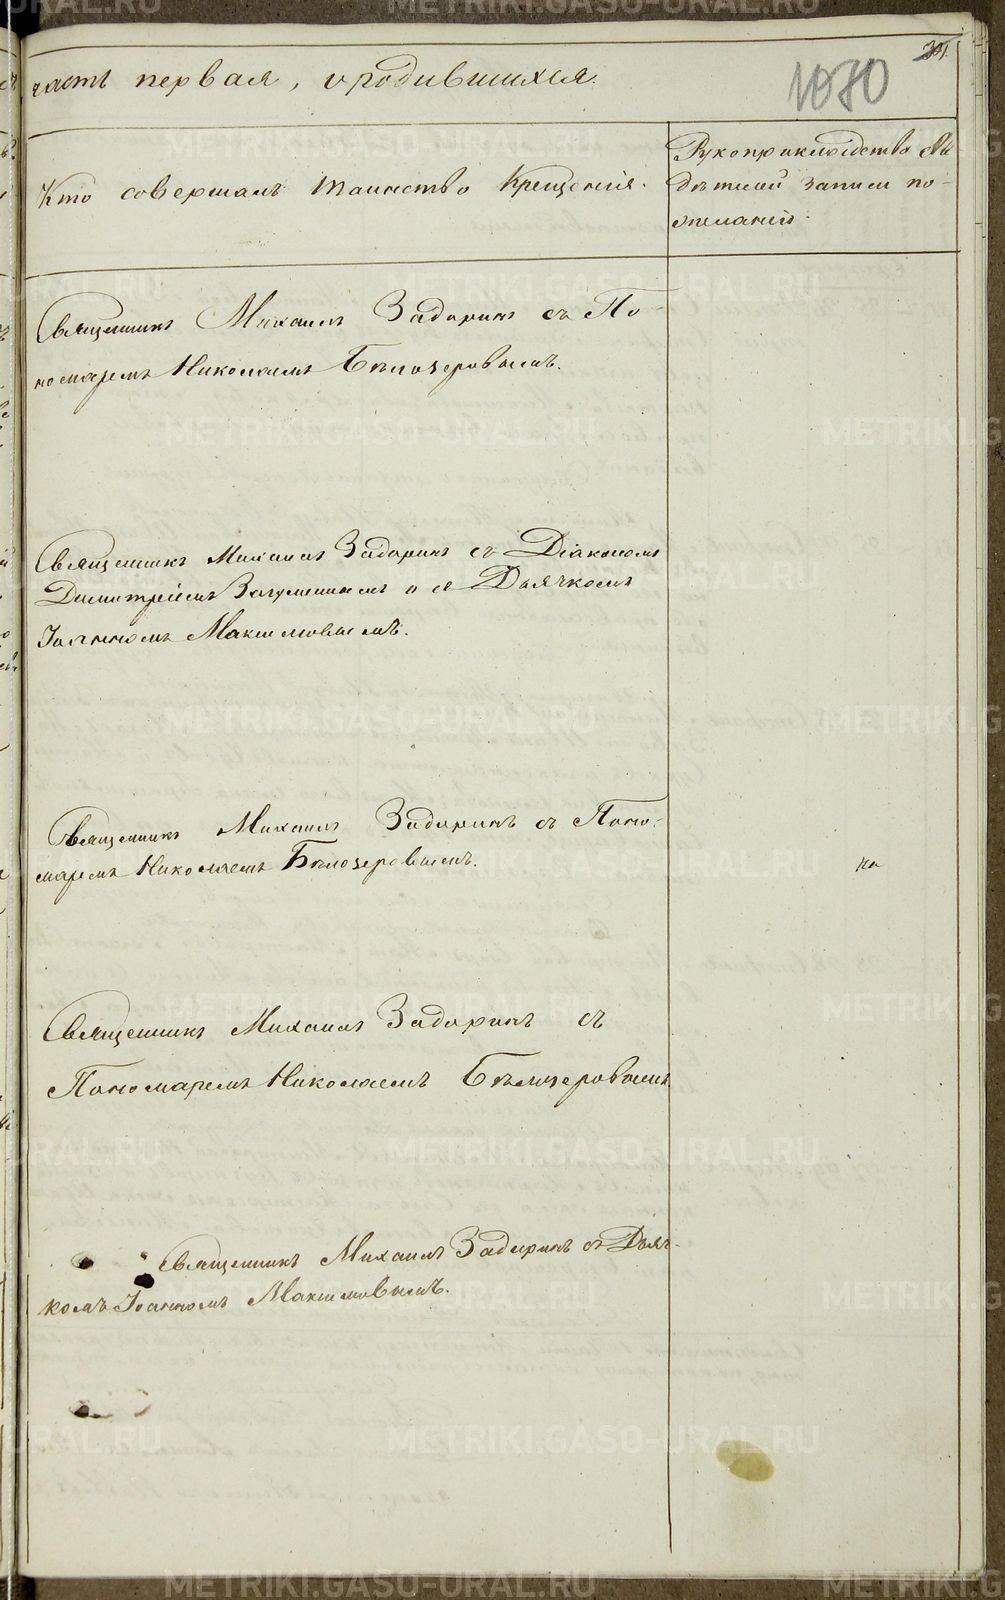 часть первая, о родившихся.
1070
Кто совершалъ таинство Крещенія.
Рукоприкладство сви
дѣтелей записи по
желанію.
Священникъ Михаилъ Задоринъ съ По-
номаремъ Николаемъ Бѣлозеровымъ.
Священникъ Михаилъ Задоринъ съ Діакономъ
Димитріемъ и съ Дьячкомъ
Іоанномъ Максимовымъ.
Священникъ Михаилъ Задоринъ съ Поно-
маремъ Николаемъ Бѣлозеровымъ.
Священникъ Михаилъ Задоринъ съ
Пономаремъ Николаемъ Бѣлозеровымъ
Священникъ Михаилъ Задоринъ съ Дьяч-
комъ Іоанномъ Максимовымъ.
METRIKI.GASO-URAL.RU